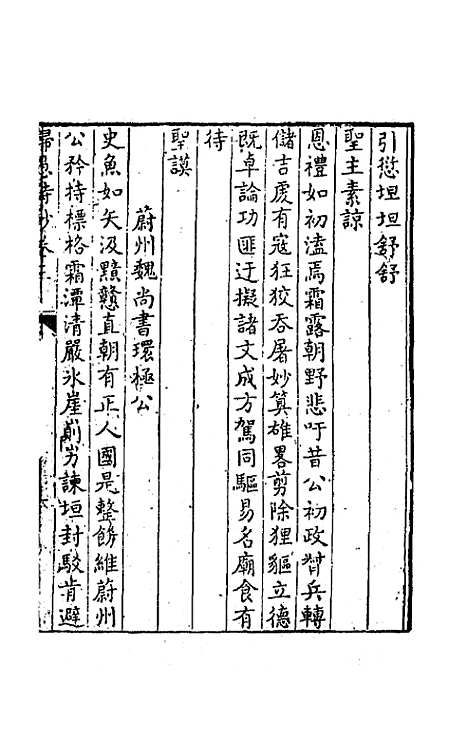 引愆坦坦舒舒
聖主素諒
恩禮如初溘焉霜露朝野悲吁昔公初政督兵轉
儲吉虔有寇狂狡呑屠妙算雄畧剪除狸貙立德
既卓論功匪迂擬諸文成方駕同驅易名廟食有
待
聖謨
蔚州魏尚書環極公
史魚如矢汲黯戇直朝有正人國是整飭維蔚州
公矜持標格霜潭清嚴氷崖崱屴諫垣封駁肯避
歸愚詩鈔卷三